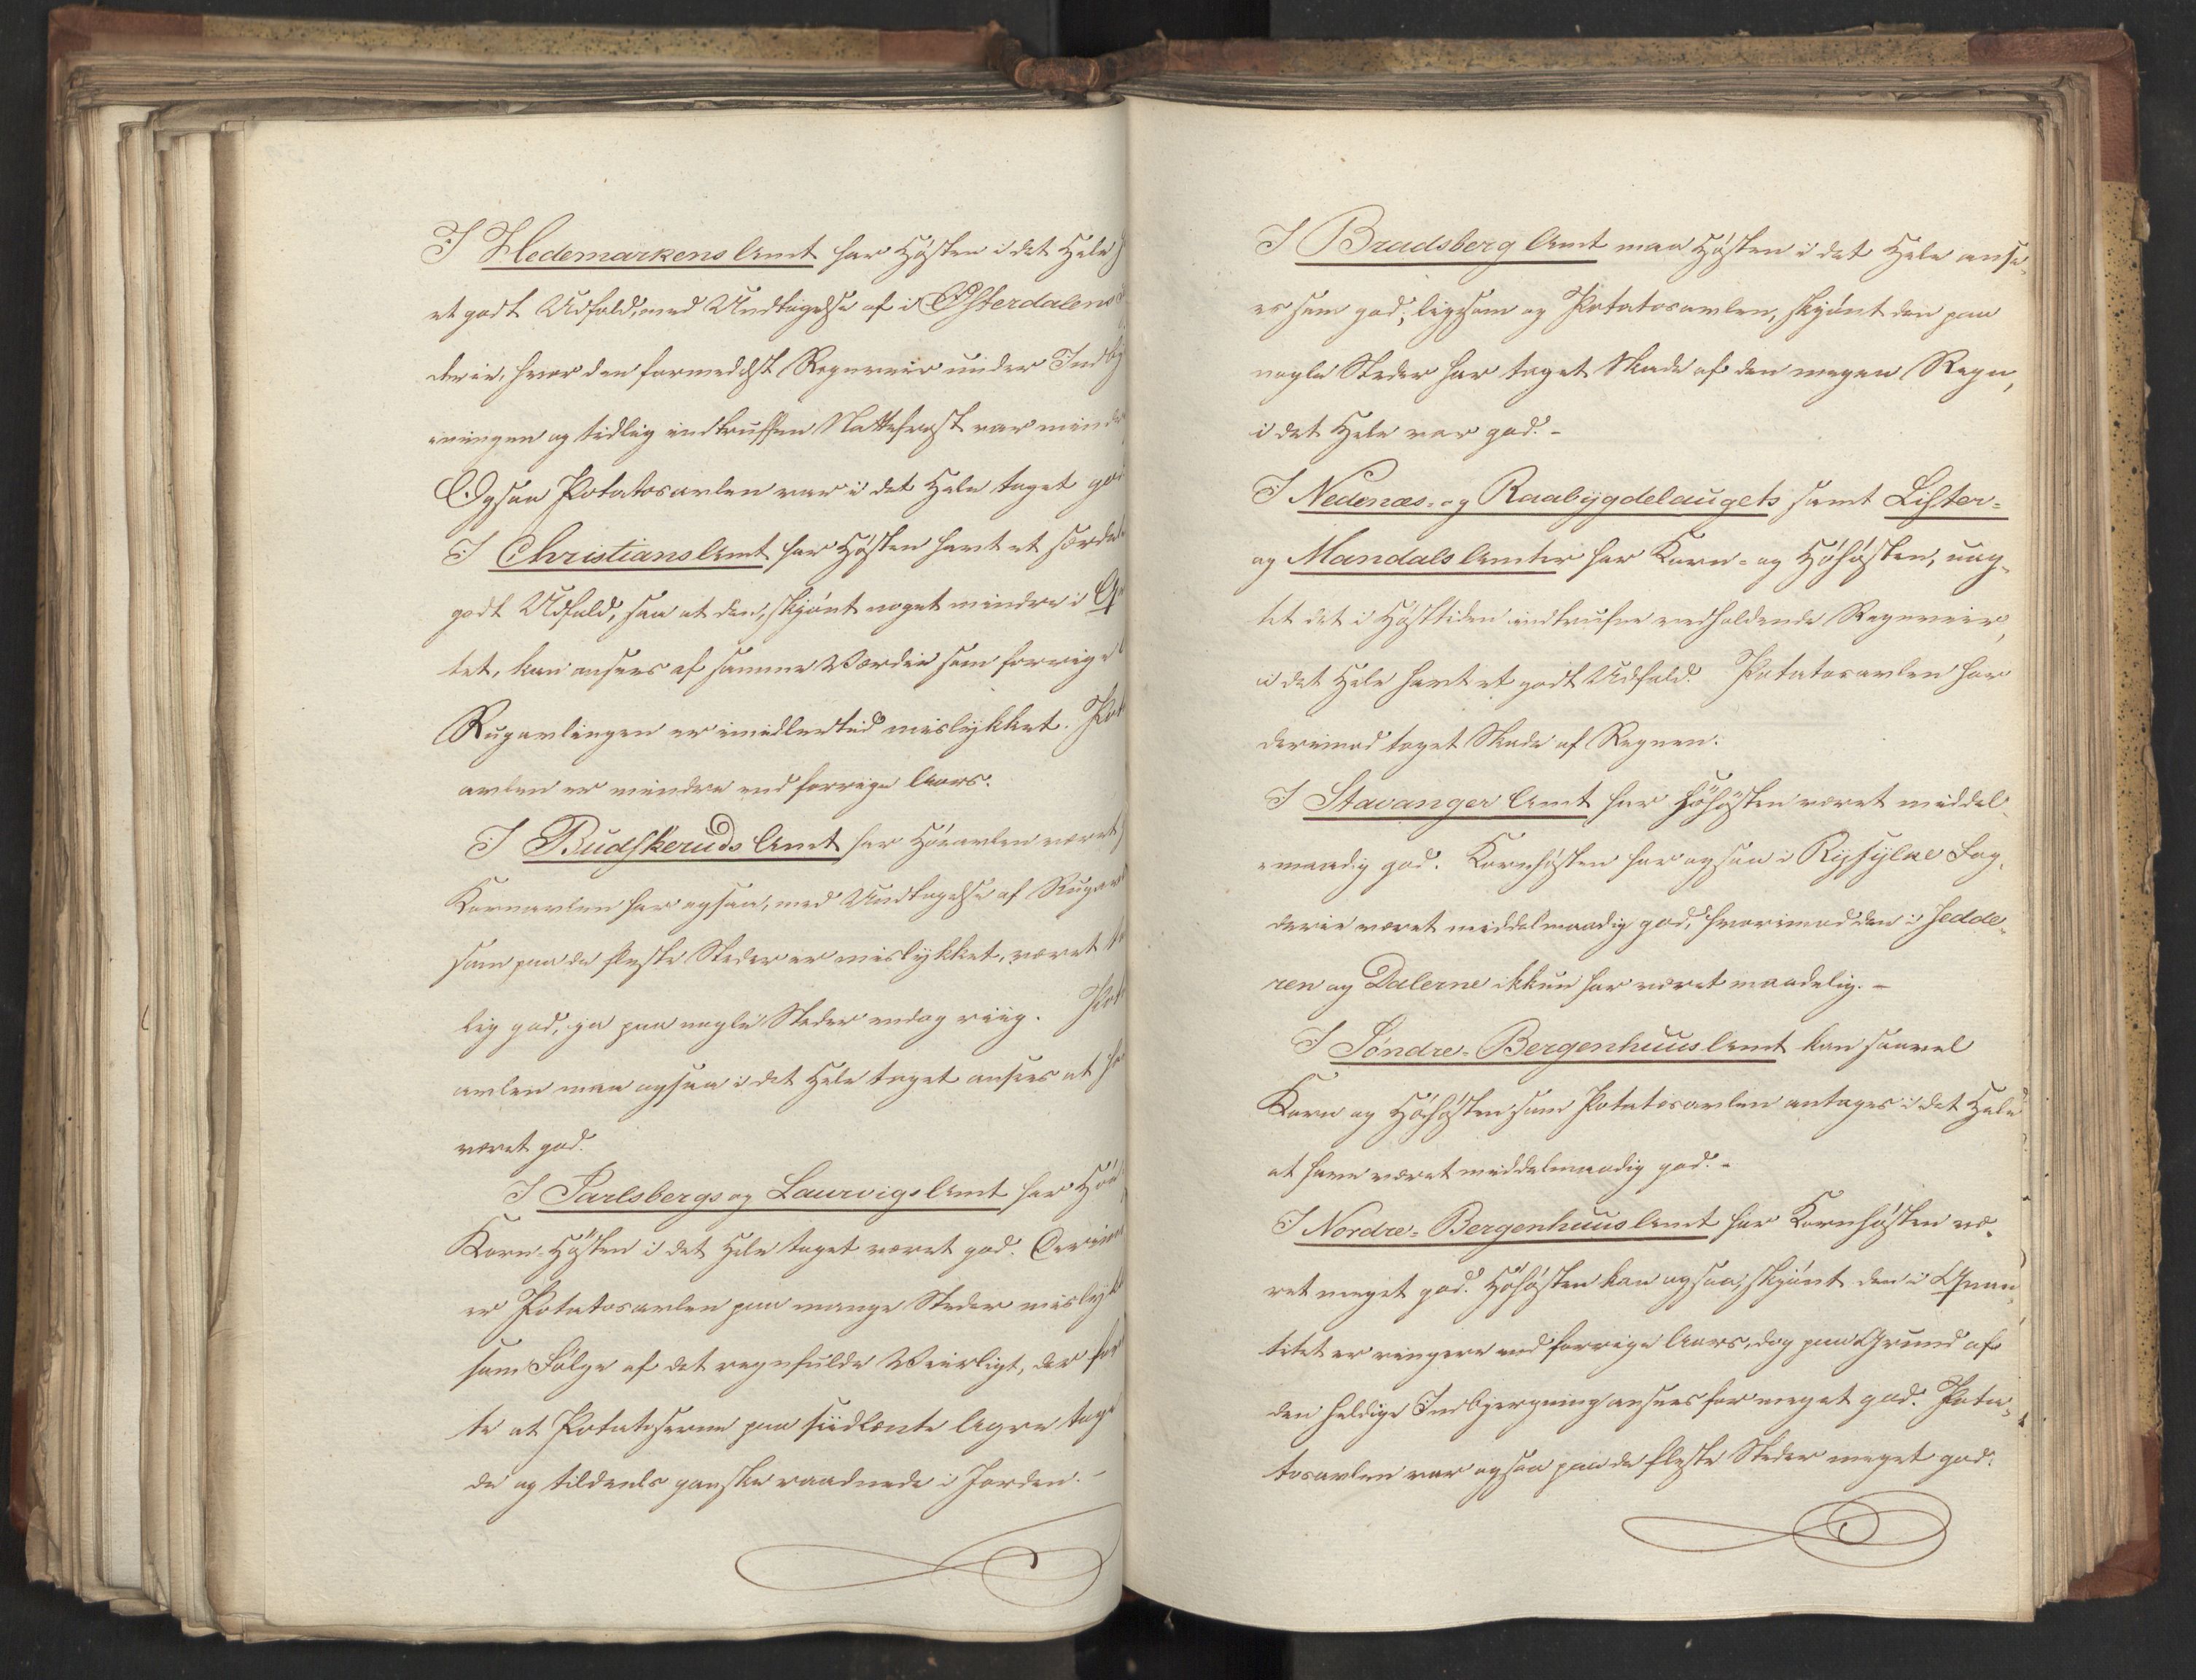 I Hedemarkens Amt har Høsten i det Hele
et godt Udfald, med Undtagelse af i Østerdalens
derie, hvor den formedelst Regnveir under Indby
ningen og tidlig indtruffen Nattefrost var mindre
Ogsaa Potatosavlen var i det Hele taget god
I Christians Amt har Høsten havt et særdeles
godt Udfald, saa at den, skjønt noget mindre i Qv
tet, kan ansees af samme Værdie som forrige
Rugavlingen er imidlertid mislykket. Pot
avlen er mindre end forrige Aars.
I Budskeruds Amt har Høeavlen været
Kornavlen har ogsaa, med Undtagelse af Rugavl
som paa de fleste Steder er mislykket, været
lig god, ja paa nogle Steder endog riig. Pot
avlen maa ogsaa i det Hele taget ansees at ha
været god.
I Jarlsbergs og Laurvigs Amt har Høe
Korn-Høsten i det Hele taget været god. Derimod
er Potatosavlen paa mange Steder mislykk
som Følge af det regnfulde Veirligt, der for
te at Potatoserne paa sidlænte Agre tog
de og tildeels ganske raadnede i Jorden. -
I Bradsberg Amt maa Høsten i det Hele anse-
es som god; ligesom og Potatosavlen, skjønt den paa
nogle Steder har taget Skade af den megen Regn,
i det Hele var god. -
I Nedenæs- og Raabygdelaugets samt Lister-
og Mandals Amter har Korn- og Høhøsten, uag-
tet det i Høsttiden indtrufne vedholdende Regnveir,
i det Hele havt et godt Udfald. Potatosavlen har
derimod taget Skade af Regnen.
I Stavanger Amt har Høhøsten været middel-
maadig god. Kornhøsten har ogsaa i Ryfylke Fog-
derie været middelmaadig god, hvorimod den i Jedde-
ren og Dalerne ikkun har været maadelig. -
I Søndre-Bergenhuus Amt kan saavel
Korn og Høhøsten som Potatosavlen antages i det Hele
at have været middelmaadig god. -
I Nordre-Bergenhuus Amt har Kornhøsten væ-
ret meget god. Høhøsten kan ogsaa, skjønt den i Qvan-
titet er ringere end forrige Aars, dog paa Grund af
den heldige Indbjergning ansees for meget god. Pota-
tosavlen var ogsaa paa de fleste Steder meget god.